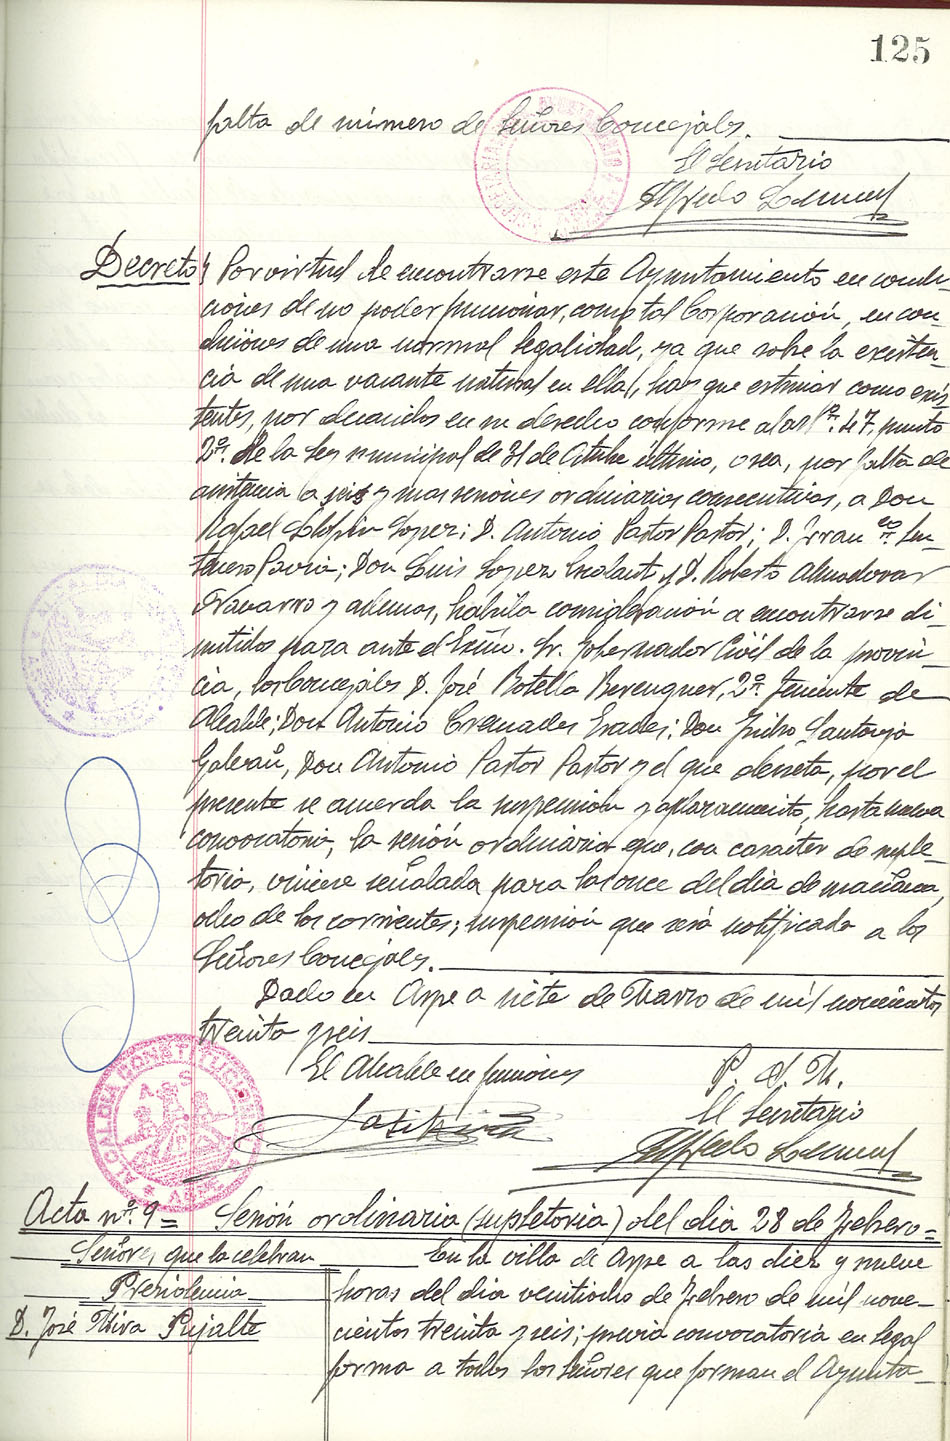 125
falta de número de Señores Concejales.
El Secretario
Alfredo
Decreto} Por virtud de encontrarse este Ayuntamiento en condi-
ciones de no poder funcionar, como tal Corporación, en con-
diciones de una normal legalidad, ya que sobre la existen-
cia de una vacante natural en ella, hay que estimar como exis-
tentes, por decaidos en su derecho conforme al artº. 47, punto
2º. de la Ley municipal de 31 de Octubre último, o sea, por falta de
asistencia a seis y mas sesiones ordinarias consecutivas, a Don
Rafael López; D. Antonio Pastor Pastor; D. Franco.
Pavia; Don Luis Lopez y D. Roberto Almodovar
Navarro y ademas, habida consideración a encontrarse di-
mitidos para ante el Excmo. Sr. Gobernador Civil de la provin-
cia, los Concejales D. José Botella Berenguer, 2º. Teniente de
Alcalde; Don Antonio Cremades; Don Santonja
Galvañ, Don Antonio Pastor Pastor y el que decreta, por el
presente se acuerda la suspensión y aplazamiento, hasta nueva
convocatoria, la sesión ordinaria que, con carácter de suple-
toria, viniese señalada para las once del dia de mañana,
ocho de los corrientes; suspensión que será notificada a los
Señores Concejales.
Dado en Aspe a siete de Marzo de mil novecientos
treinta y seis
El Alcalde en funciones
P. S. M.
El Secretario
Alfredo
ALCALDIA CONSTITUCIONAL
ASPE
Acta nº. 9 = Sesión ordinaria (supletoria) del dia 28 de Febrero =
Señores que la celebran
En la villa de Aspe a las diez y nueve
Presidencia
horas del dia veintiocho de Febrero de mil nove-
D. José Mira Pujalte
cientos treinta y seis; previa convocatoria en legal
forma a todos los Señores que forman el Ayunta-